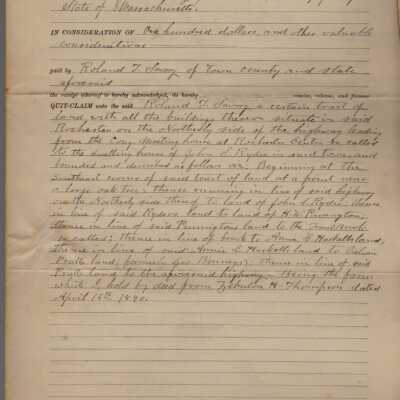 State of Massachusetts.
IN CONSIDERATION OF One hundred dollars, and other valuable
considerations
paid by Roland T. Savory of Town County and state
aforesaid
the receipt whereof is hereby acknowledged, do hereby remise, release, and forever
QUIT-CLAIM unto the said Roland T. Savory a certain tract of
land with all the buildings thereon situate in said
Rochester on the Northerly side of the highway leading
from the Cong. Meeting house at Rochester Center so called
to the dwelling house of John S. Ryder in said town and
bounded and described as follows viz: Beginning at the
southeast corner of said tract of land at a point near
a large oak tree; thence running in line of said highway
on the Northerly side to land of John S. Ryder thence
in line of said Ryders land to land of
thence in line of said land to the
so called; thence in line of brook to Anna C. Haskells land,
thence in line of said Annie C. Haskells land to
land, formerly Geo Bonneys; thence in line of said
land to the aforesaid highway. Being the farm
which I hold by deed from Zebulon H. Thompson dated
April 16th 1890.